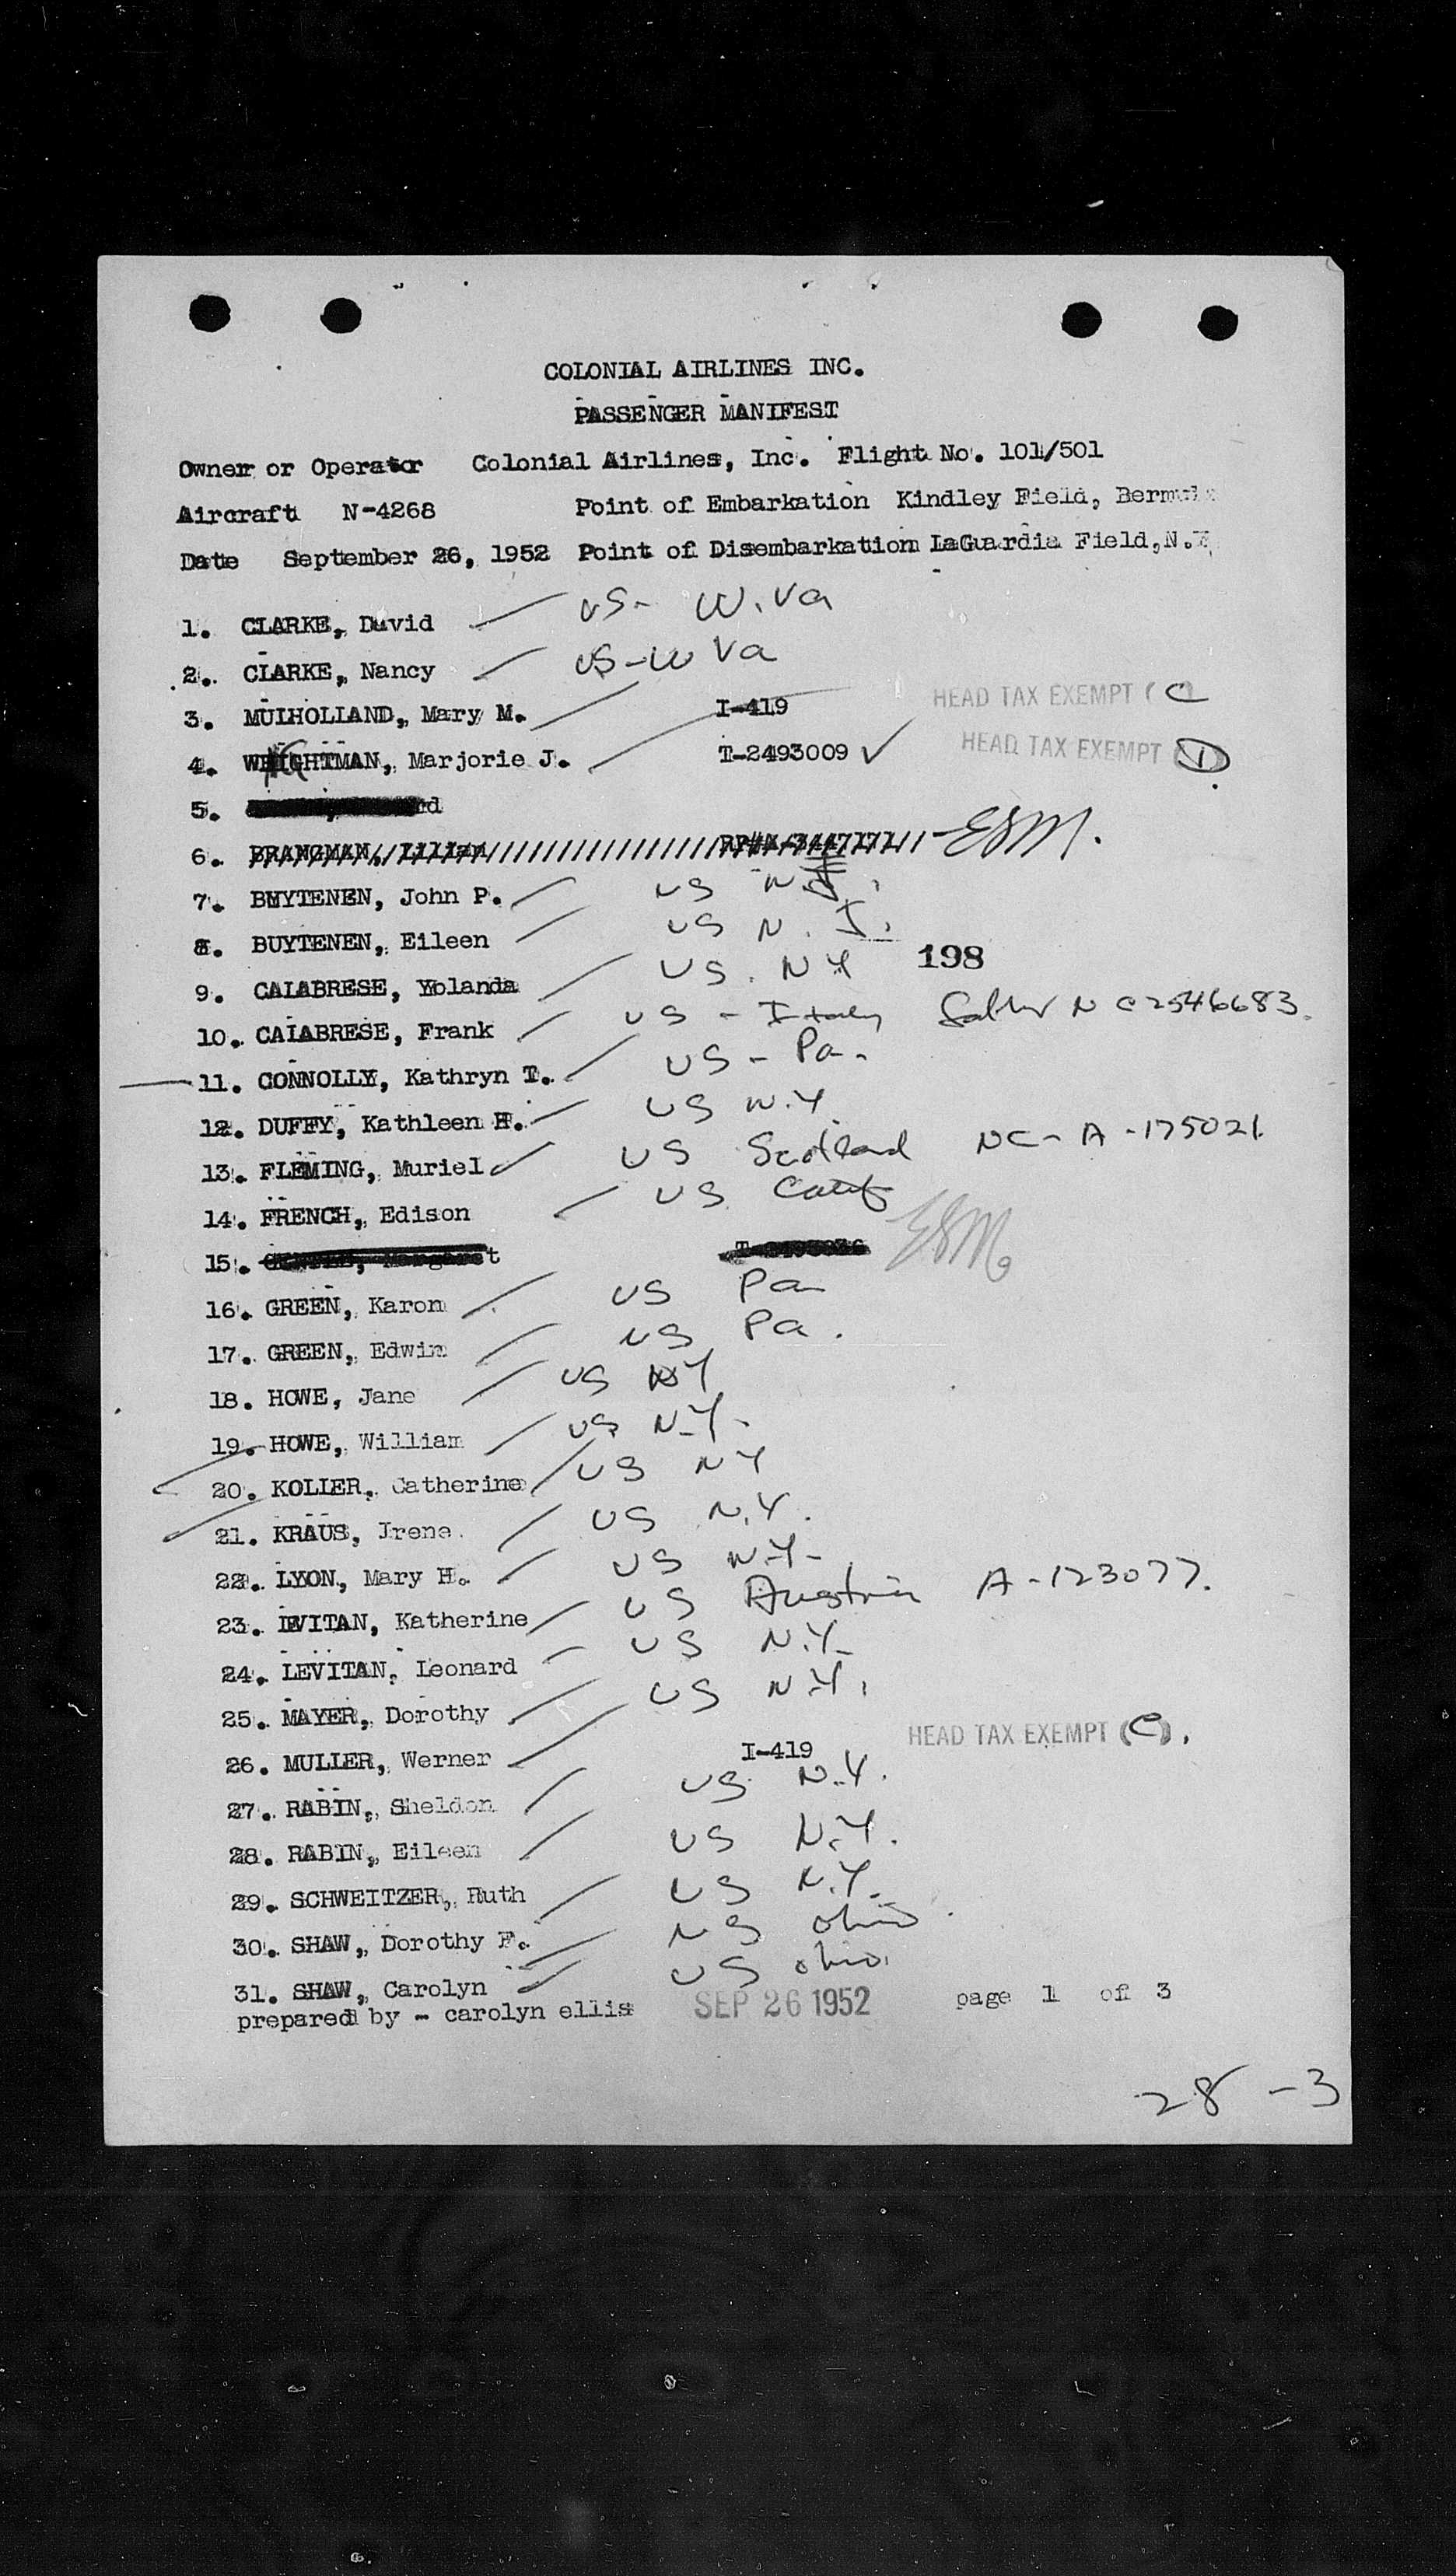 COLONIAL AIRLINES INC.
PASSENGER MANIFEST
Owner or Operator Colonial Airlines, Inc. Flight No. 101/501
Aircraft N-4268 Point of Embarkation Kindley Field, Bermuda
Date September 26, 1952 Point of Disembarkation LaGuardia Field, N.Y.
1. CLARKE, David US- W.Va
2. CLARKE, Nancy US-W Va
3. MULHOLLAND, Mary M. I-419 HEAD TAX EXEMPT (C)
4. WEIGHTMAN, Marjorie J. T-2493009 ✓ HEAD TAX EXEMPT (1)
5.
6. BRANGMAN, ESM.
7. BUYTENEN, John P. US N.J.
8. BUYTENEN, Eileen US N.J.
9. CALABRESE, Yolanda US. NY 198
10. CALABRESE, Frank US - Italy father N C2546683.
11. CONNOLLY, Kathryn T. US - Pa.
12. DUFFY, Kathleen H. US N.Y.
13. FLEMING, Muriel US Scotland NC-A-175021.
14. FRENCH, Edison US Calif
15. Margaret ESM
16. GREEN, Karon US Pa
17. GREEN, Edwin US Pa.
18. HOWE, Jane US NY
19. HOWE, William US N.Y.
20. KOLLER, Catherine US NY
21. KRAUS, Irene. US N.Y.
22. LYON, Mary H. US N.Y.
23. LEVITAN, Katherine US Austria A-123077.
24. LEVITAN, Leonard US N.Y.
25. MAYER, Dorothy US N.Y.
26. MULLER, Werner I-419 HEAD TAX EXEMPT (C).
27. RABIN, Sheldon US N.Y.
28. RABIN, Eileen US N.Y.
29. SCHWEITZER, Ruth US N.Y.
30. SHAW, Dorothy F. US Ohio.
31. SHAW, Carolyn US Ohio.
prepared by - carolyn ellis SEP 26 1952 page 1 of 3
28 -3